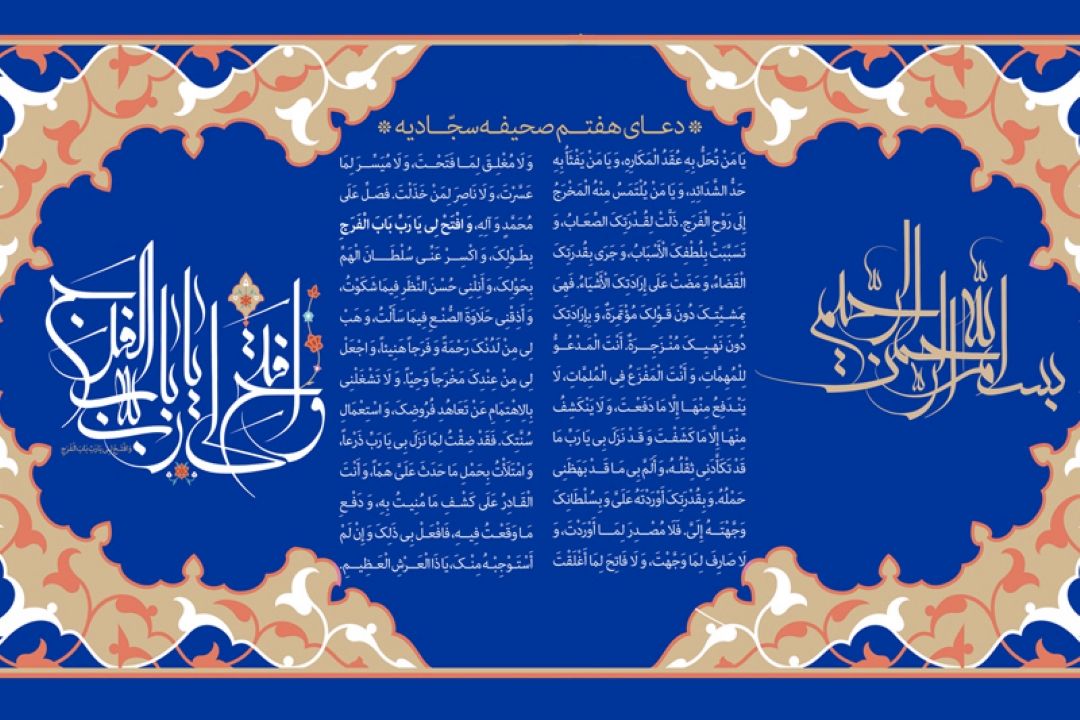 دعای هفتم صحیفه سجّادیه
یَا مَنْ تُحَلُّ بِهِ عُقَدُ الْمَکَارِهِ، وَ یَا مَنْ یَفْثَأُ بِهِ
حَدُّ الشَّدَائِدِ، وَ یَا مَنْ یُلْتَمَسُ مِنْهُ الْمَخْرَجُ
إِلَى رَوْحِ الْفَرَجِ. ذَلَّتْ لِقُدْرَتِکَ الصِّعَابُ، وَ
تَسَبَّبَتْ بِلُطْفِکَ الْأَسْبَابُ، وَ جَرَى بِقُدْرَتِکَ
الْقَضَاءُ، وَ مَضَتْ عَلَى إِرَادَتِکَ الْأَشْیَاءُ. فَهِیَ
بِمَشِیَّتِکَ دُونَ قَوْلِکَ مُؤْتَمِرَةٌ، وَ بِإِرَادَتِکَ
دُونَ نَهْیِکَ مُنْزَجِرَةٌ. أَنْتَ الْمَدْعُوُّ
لِلْمُهِمَّاتِ، وَ أَنْتَ الْمَفْزَعُ فِی الْمُلِمَّاتِ، لَا
یَنْدَفِعُ مِنْهَا إِلَّا مَا دَفَعْتَ، وَ لَا یَنْکَشِفُ
مِنْهَا إِلَّا مَا کَشَفْتَ وَ قَدْ نَزَلَ بِی یَا رَبِّ مَا
قَدْ تَکَأَّدَنِی ثِقْلُهُ، وَ أَلَمَّ بِی مَا قَدْ بَهَظَنِی
حَمْلُهُ. وَ بِقُدْرَتِکَ أَوْرَدْتَهُ عَلَیَّ وَ بِسُلْطَانِکَ
وَجَّهْتَهُ إِلَیَّ. فَلَا مُصْدِرَ لِمَا أَوْرَدْتَ، وَ
لَا صَارِفَ لِمَا وَجَّهْتَ، وَ لَا فَاتِحَ لِمَا أَغْلَقْتَ
وَ لَا مُغْلِقَ لِمَا فَتَحْتَ، وَ لَا مُیَسِّرَ لِمَا
عَسَّرْتَ، وَ لَا نَاصِرَ لِمَنْ خَذَلْتَ. فَصَلِّ عَلَى
مُحَمَّدٍ وَ آلِهِ، وَ افْتَحْ لِی یَا رَبِّ بَابَ الْفَرَجِ
بِطَوْلِکَ، وَ اکْسِرْ عَنِّی سُلْطَانَ الْهَمِّ
بِحَوْلِکَ، وَ أَنِلْنِی حُسْنَ النَّظَرِ فِیمَا شَکَوْتُ،
وَ أَذِقْنِی حَلَاوَةَ الصُّنْعِ فِیمَا سَأَلْتُ، وَ هَبْ
لِی مِنْ لَدُنْکَ رَحْمَةً وَ فَرَجاً هَنِیئاً، وَ اجْعَلْ
لِی مِنْ عِنْدِکَ مَخْرَجاً وَحِیّاً. وَ لَا تَشْغَلْنِی
بِالِاهْتِمَامِ عَنْ تَعَاهُدِ فُرُوضِکَ، وَ اسْتِعْمَالِ
سُنَّتِکَ. فَقَدْ ضِقْتُ لِمَا نَزَلَ بِی یَا رَبِّ ذَرْعاً،
وَ امْتَلَأْتُ بِحَمْلِ مَا حَدَثَ عَلَیَّ هَمّاً، وَ أَنْتَ
الْقَادِرُ عَلَى کَشْفِ مَا مُنِیتُ بِهِ، وَ دَفْعِ
مَا وَقَعْتُ فِیهِ، فَافْعَلْ بِی ذَلِکَ وَ إِنْ لَمْ
أَسْتَوْجِبْهُ مِنْکَ، یَا ذَا الْعَرْشِ الْعَظِیمِ.
بسم الله الرحمن الرحیم
و افتح لی یا رب باب الفرج
وَ افْتَحْ لِی یَا رَبِّ بَابَ الْفَرَجِ